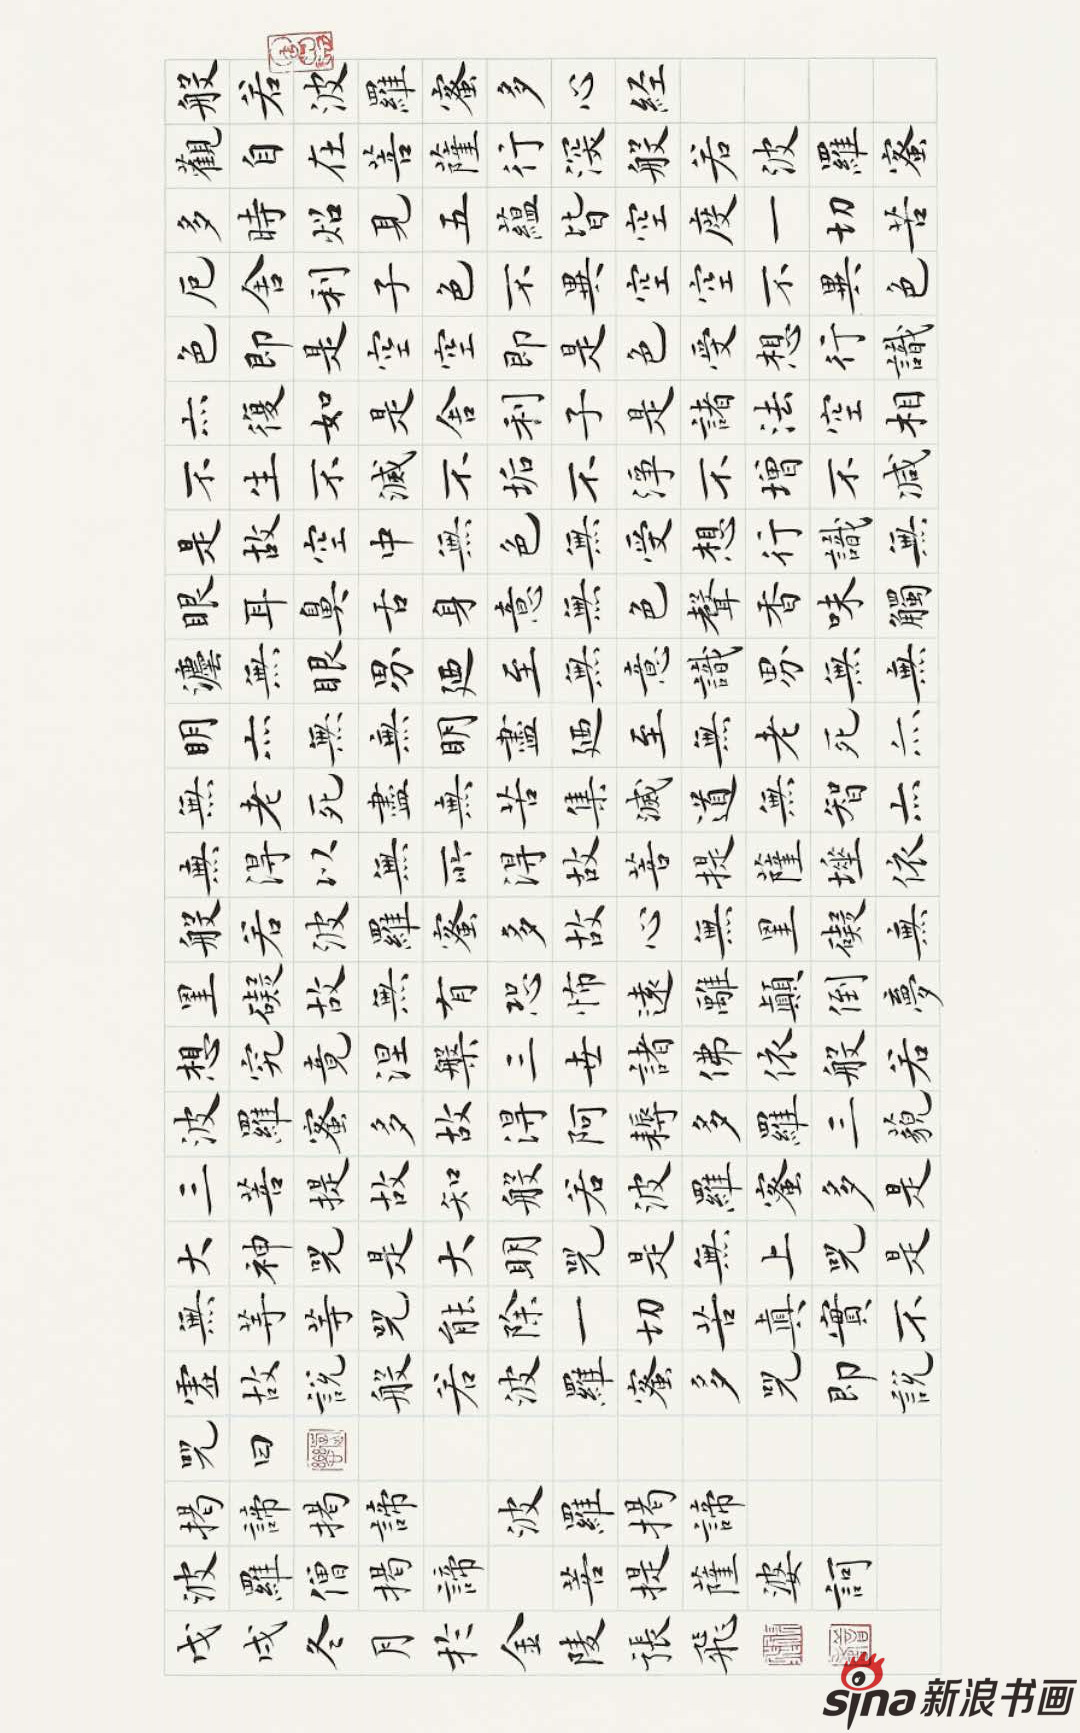 般若波羅蜜多心経
觀自在菩薩行深般若波羅蜜
多時炤見五蘊皆空度一切苦
厄舍利子色不異空空不異色
色即是空空即是色受想行識
亦復如是舍利子是諸法空相
不生不滅不垢不淨不增不減
是故空中無色無受想行識無
眼耳鼻舌身意無色聲香味觸
灋無眼界廼至無意識界無無
明亦無無明盡廼至無老死亦
無老死盡無苦集滅道無智亦
無得以無所得故菩提薩埵依
般若波羅蜜多故心無罣礙無
罣礙故無有恐怖遠離顛倒夢
想究竟涅槃三世諸佛依般若
波羅蜜多故得阿耨多羅三藐
三菩提故知般若波羅蜜多是
大神咒是大明咒是無上咒是
無等等咒能除一切苦真實不
虛故說般若波羅蜜多咒即說
咒曰
揭諦揭諦 波羅揭諦
波羅僧揭諦 菩提薩婆訶
戊戌冬月於金陵張飛
sina新浪书画